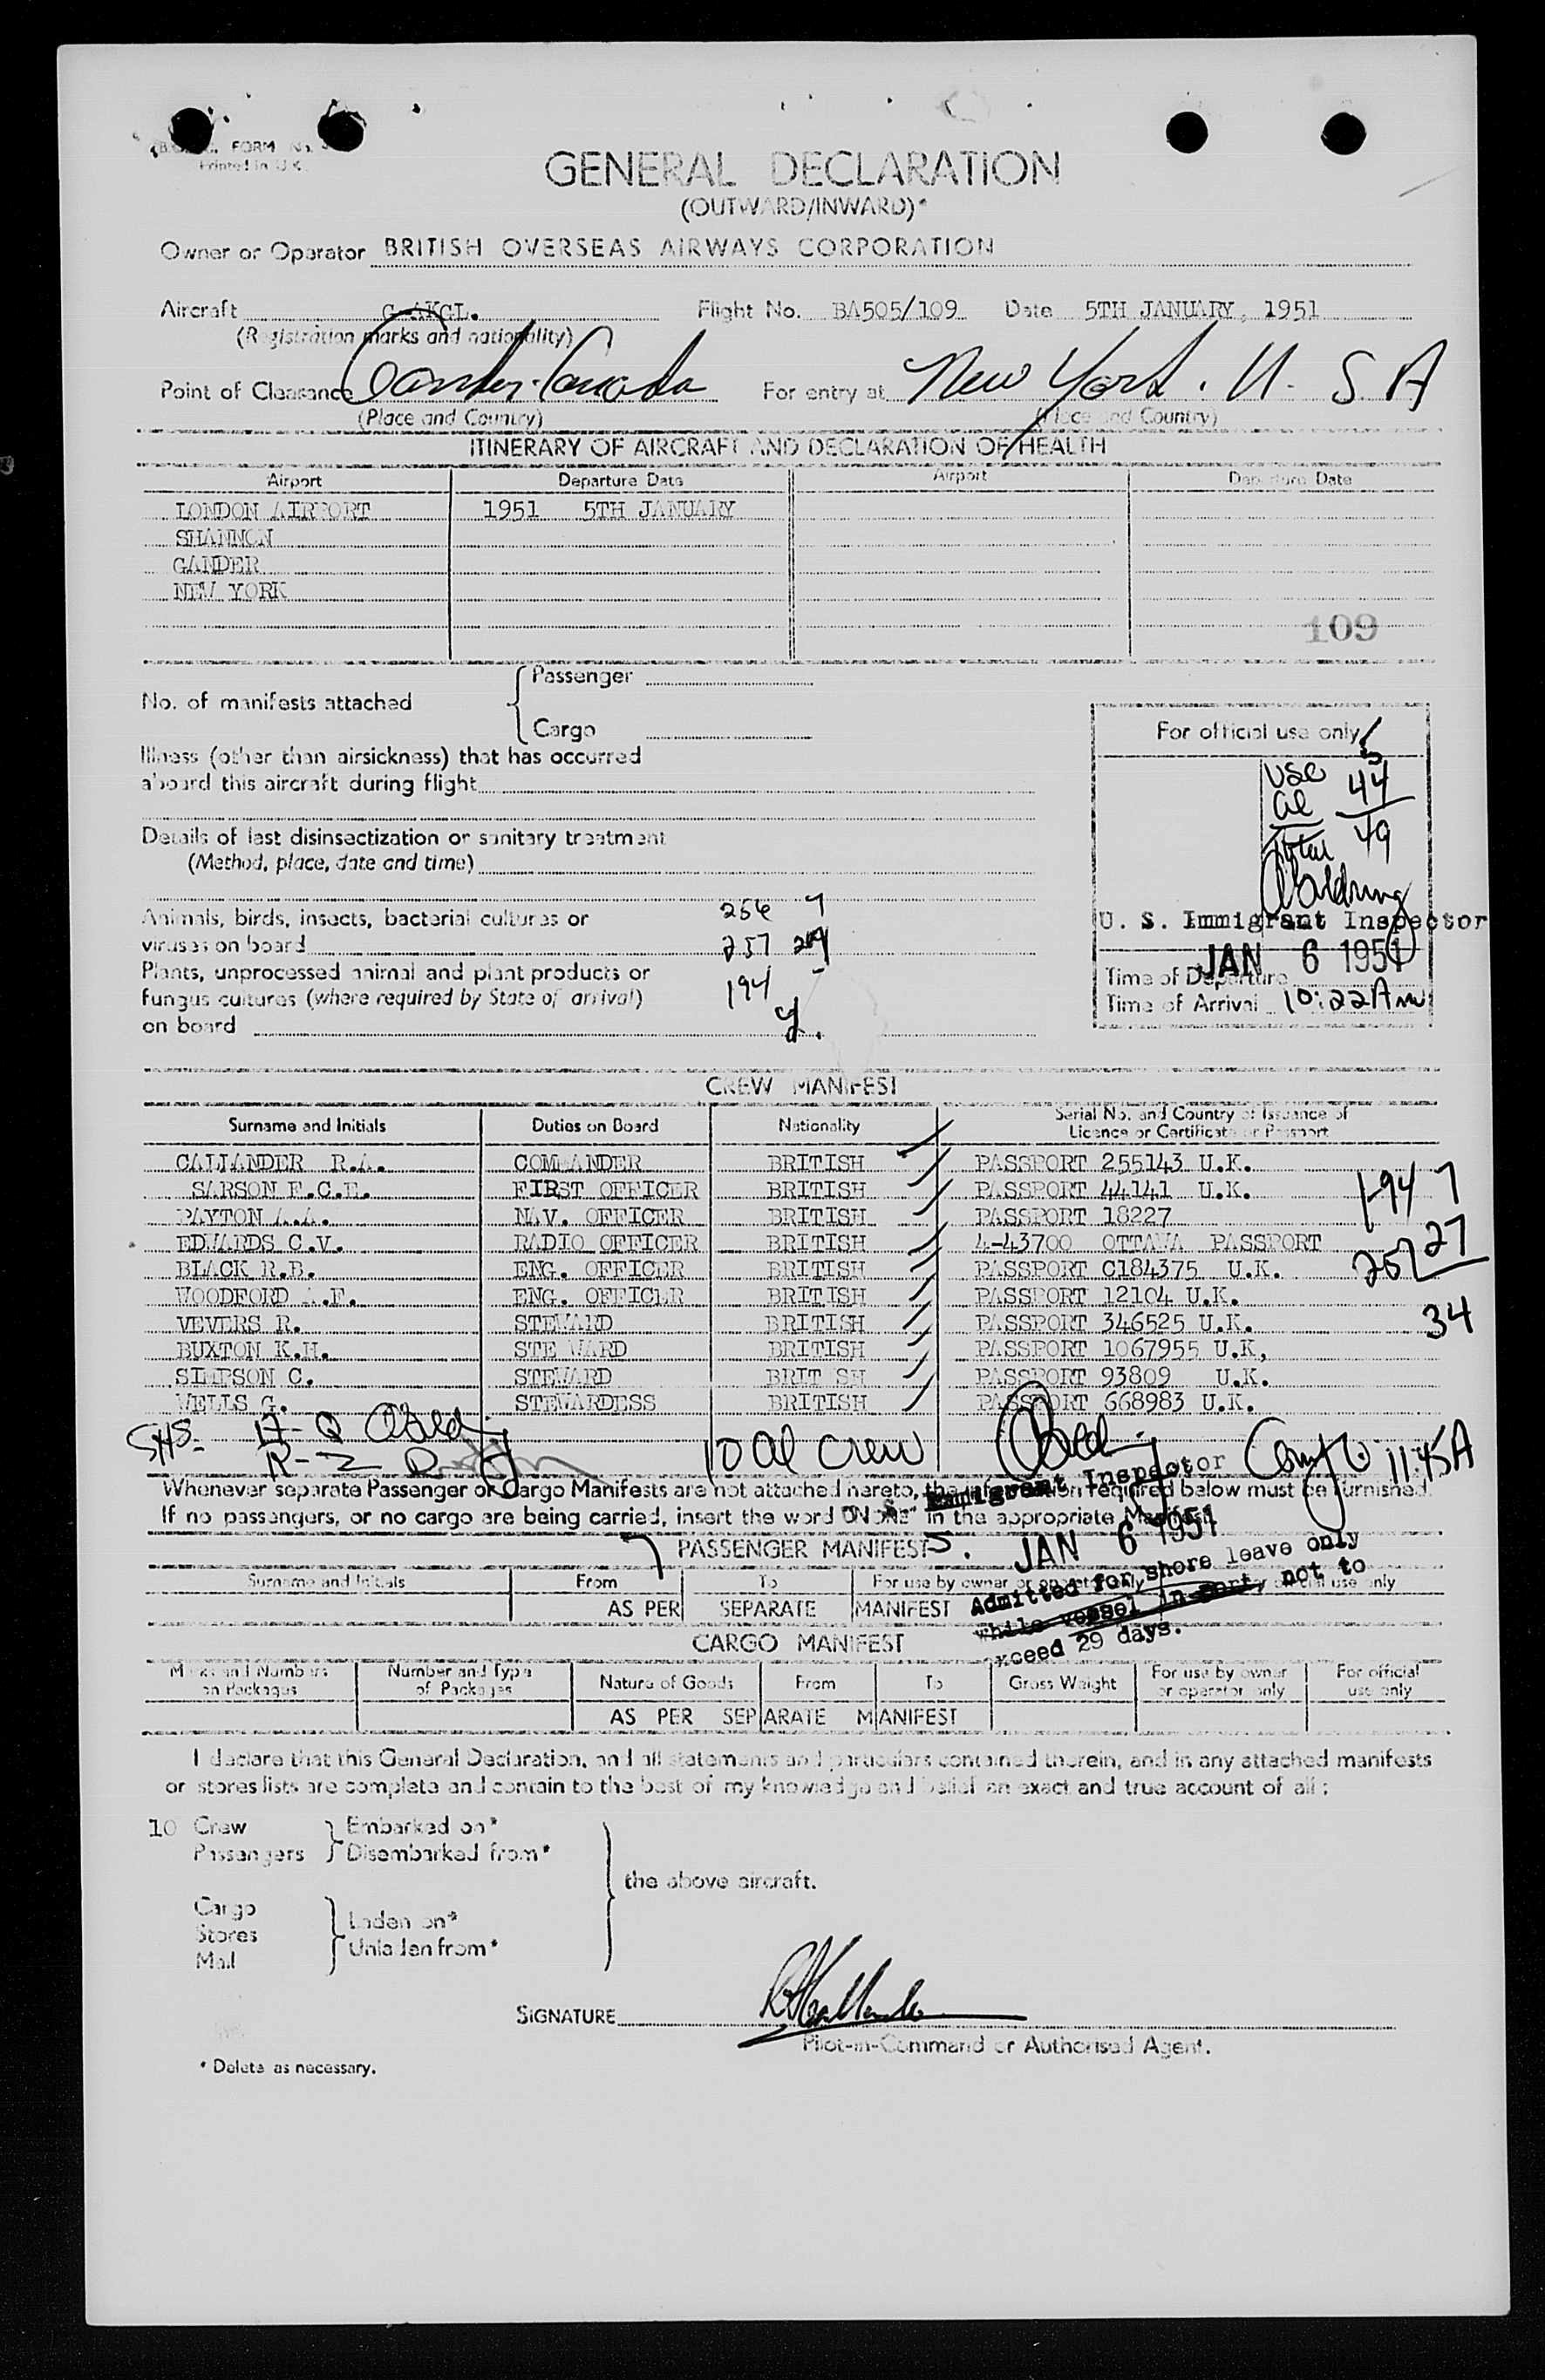 FORM No.
Printed in U.K.
GENERAL DECLARATION
(OUTWARD/INWARD)*
Owner or Operator BRITISH OVERSEAS AIRWAYS CORPORATION
Aircraft G-AKGL. Flight No. BA505/109 Date 5TH JANUARY, 1951
(Registration marks and nationality)
Point of Clearance Gander. Canada For entry at New York. U. S. A
(Place and Country) (Place and Country)
ITINERARY OF AIRCRAFT AND DECLARATION OF HEALTH
Airport Departure Date Airport Departure Date
LONDON AIRPORT 1951 5TH JANUARY
SHANNON
GANDER
NEW YORK
109
Passenger
No. of manifests attached
Cargo
For official use only
Illness (other than airsickness) that has occurred
aboard this aircraft during flight
USC 5
al 44
Total 49
Details of last disinsectization or sanitary treatment
(Method, place, date and time)
Animals, birds, insects, bacterial cultures or 256 7
viruses on board 257 27
U. S. Immigrant Inspector
JAN 6 1951
Plants, unprocessed animal and plant products or
fungus cultures (where required by State of arrival) 194
on board
Time of Departure
Time of Arrival 10:22 Am
CREW MANIFEST
Surname and Initials Duties on Board Nationality Serial No. and Country of Issuance of
Licence or Certificate or Passport
CALLANDER R.A. COMMANDER BRITISH PASSPORT 255143 U.K.
SARSON F.C.E. FIRST OFFICER BRITISH PASSPORT 44141 U.K. I-94 7
PAYTON A.A. NAV. OFFICER BRITISH PASSPORT 18227
EDWARDS C.V. RADIO OFFICER BRITISH 4-43700 OTTAWA PASSPORT
BLACK R.B. ENG. OFFICER BRITISH PASSPORT C184375 U.K. 257 27
WOODFORD A.F. ENG. OFFICER BRITISH PASSPORT 12104 U.K.
VEVERS R. STEWARD BRITISH PASSPORT 346525 U.K. 34
BUXTON K.H. STEWARD BRITISH PASSPORT 1067955 U.K,
SIMPSON C. STEWARD BRITISH PASSPORT 93809 U.K.
WELLS G. STEWARDESS BRITISH PASSPORT 668983 U.K.
SHS-
R-2
10 al crew
11:45A
Whenever separate Passenger or Cargo Manifests are not attached hereto, the information required below must be furnished.
If no passengers, or no cargo are being carried, insert the word "NONE" in the appropriate Manifest.
Immigrant Inspector
JAN 6 1951
PASSENGER MANIFEST
Admitted for shore leave only
while vessel in port, not to
exceed 29 days.
Surname and Initials From To For use by owner or operator only For official use only
AS PER SEPARATE MANIFEST
CARGO MANIFEST
Marks and Numbers on Packages Number and Type of Packages Nature of Goods From To Gross Weight For use by owner or operator only For official use only
AS PER SEPARATE MANIFEST
I declare that this General Declaration, and all statements and particulars contained therein, and in any attached manifests
or stores lists are complete and contain to the best of my knowledge and belief an exact and true account of all :
10 Crew Embarked on*
Passengers Disembarked from*
the above aircraft.
Cargo
Stores Laden on*
Mail Unladen from*
SIGNATURE
Pilot-in-Command or Authorised Agent.
* Delete as necessary.